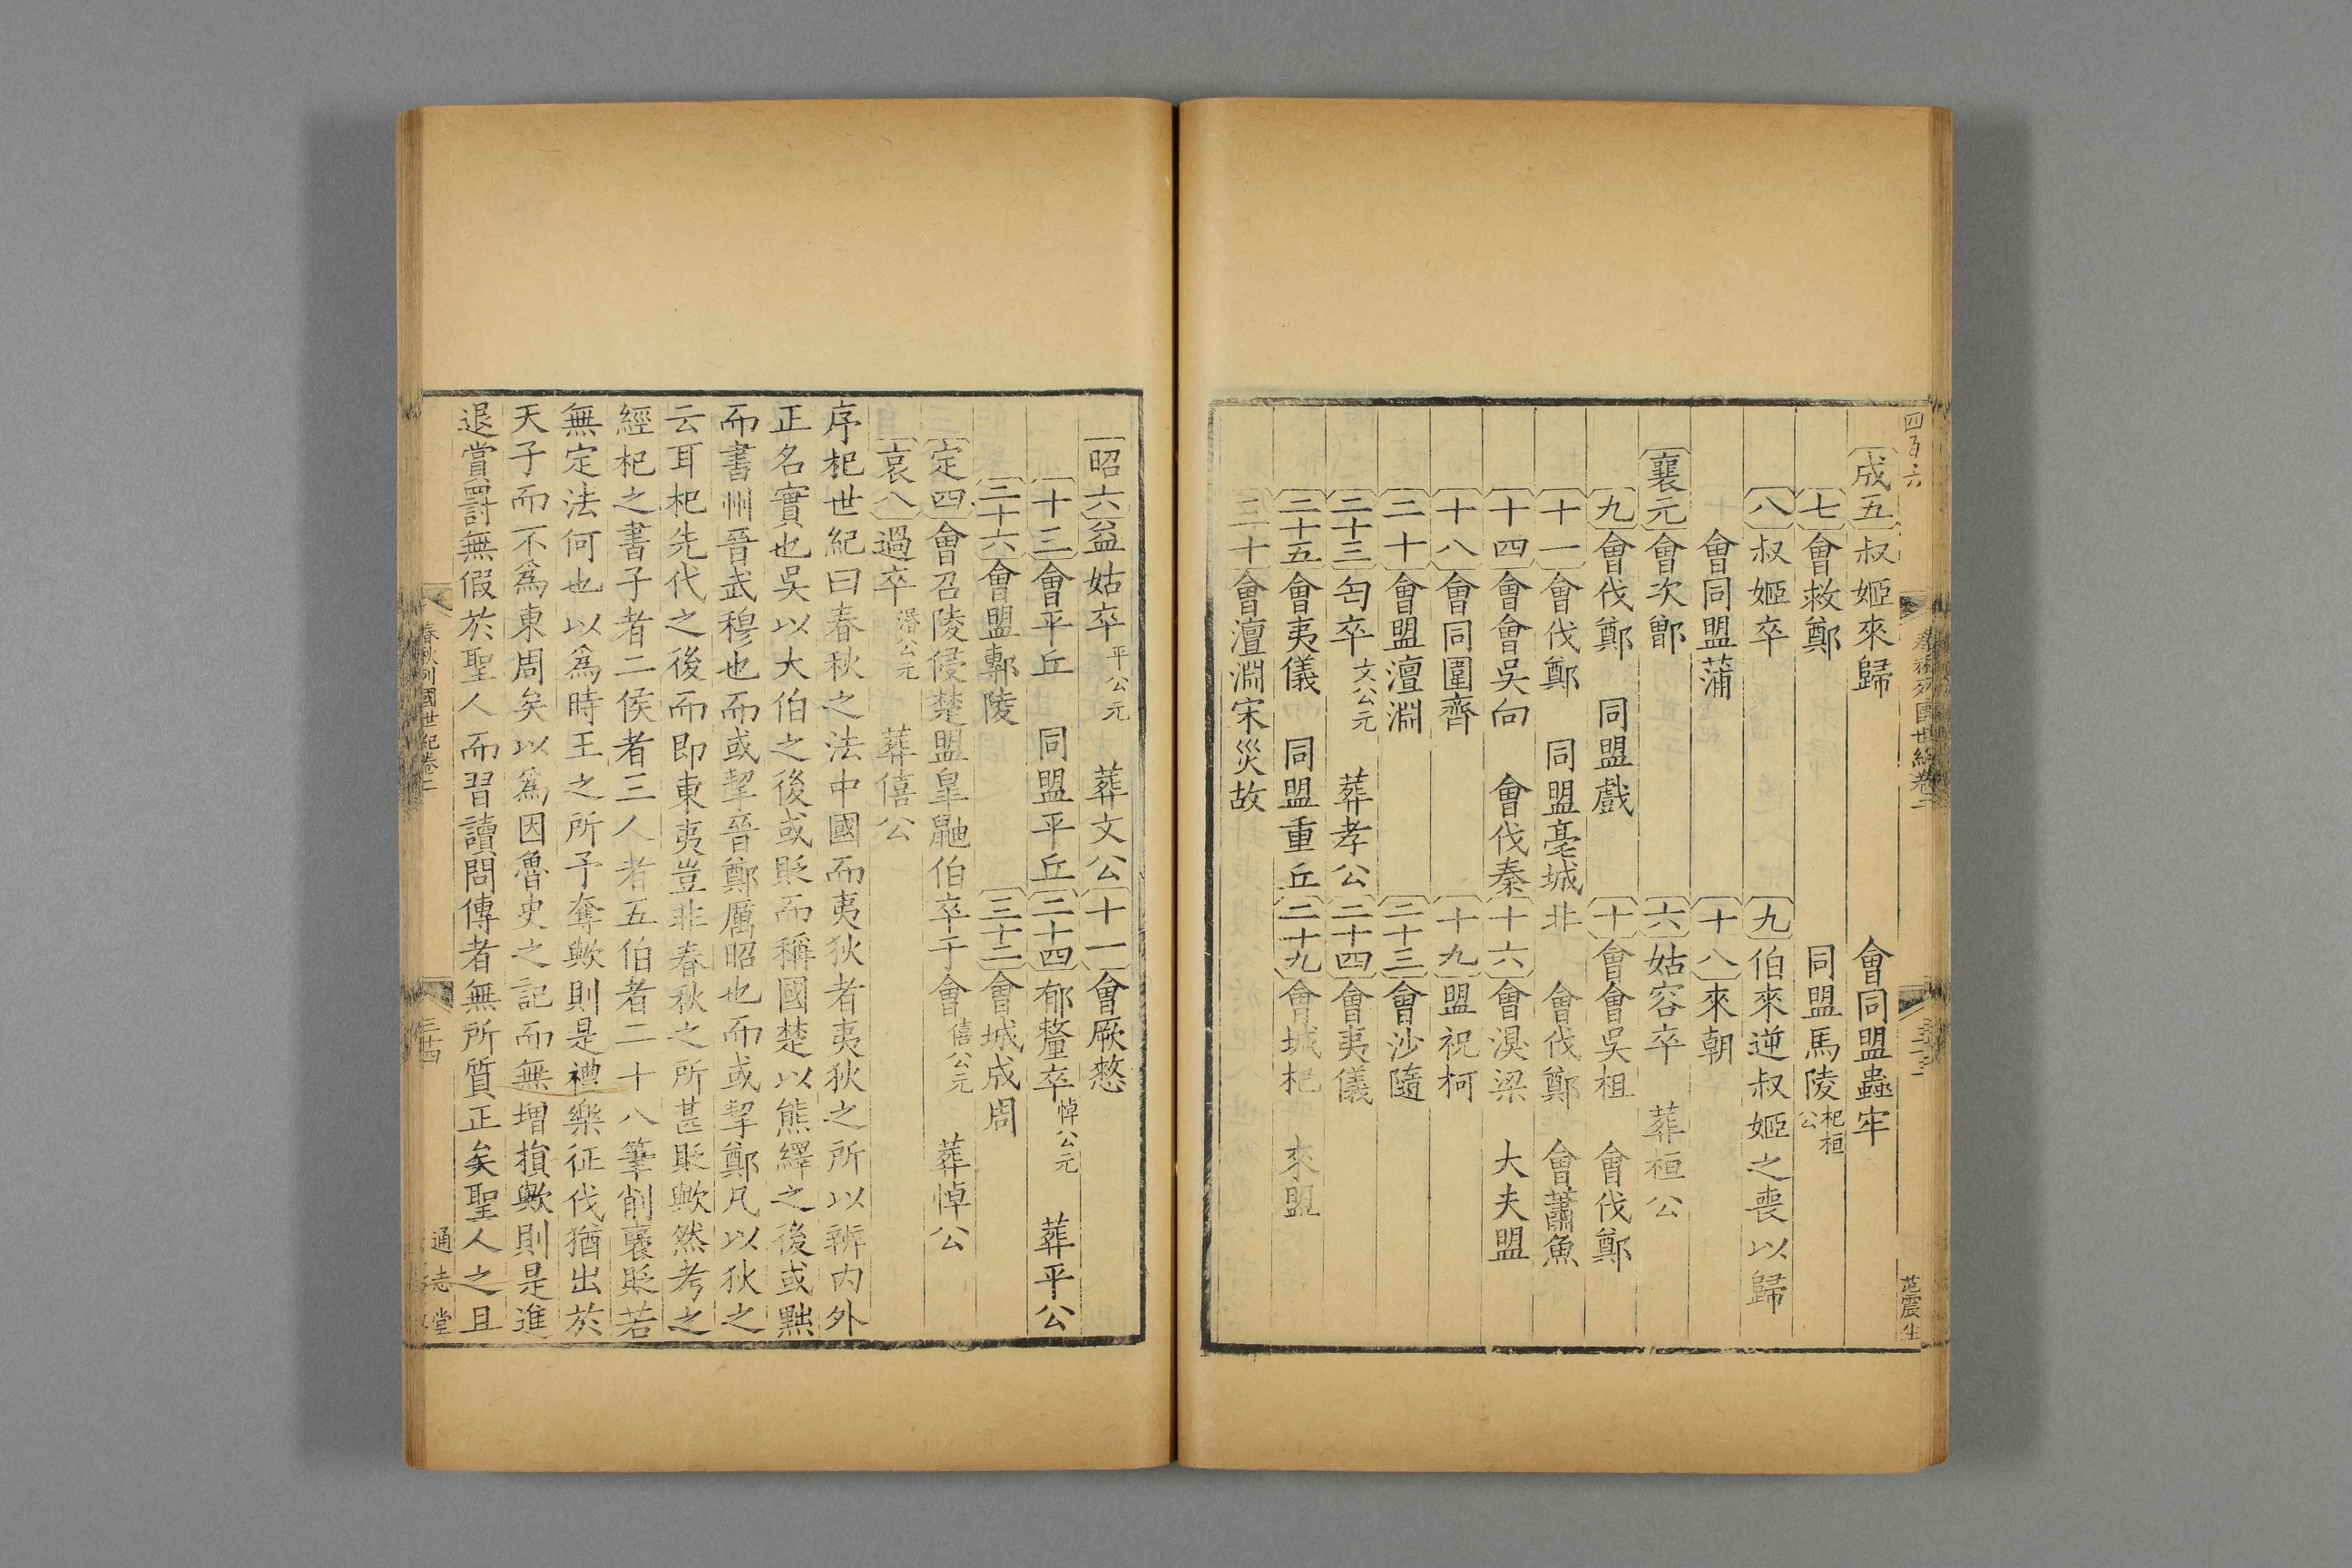 四百六
成五叔姬來歸 會同盟蟲牢
七會救鄭 同盟馬陵杞桓公
八叔姬卒 九伯來逆叔姬之喪以歸
會同盟蒲 十八來朝
襄元會次鄫 六姑容卒 葬桓公
九會伐鄭 同盟戲 十會會吳柤 會伐鄭
十一會伐鄭 同盟亳城非 會伐鄭 會蕭魚
十四會會吳向 會伐秦 十六會湨梁 大夫盟
十八會同圍齊 十九盟祝柯
二十會盟澶淵 二十三會沙隨
二十三匄卒文公元 葬孝公 二十四會夷儀
二十五會夷儀 同盟重丘 二十九會城杞 來盟
三十會澶淵宋災故
春秋列國世紀卷二
范震生
昭六益姑卒平公元 葬文公 十一會厥憖
十三會平丘 同盟平丘 二十四郁釐卒悼公元 葬平公
二十六會盟鄟陵 三十二會城成周
定四會召陵侵楚盟臯鼬伯卒于會僖公元 葬悼公
哀八過卒湣公元 葬僖公
序杞世紀曰春秋之法中國而夷狄者夷狄之所以辨内外
正名實也吳以大伯之後或貶而稱國楚以熊繹之後或黜
而書州晉武穆也而或挈晉鄭厲昭也而或挈鄭凡以狄之
云耳杞先代之後而即東夷豈非春秋之所甚貶歟然考之
經杞之書子者二侯者三人者五伯者二十八筆削襃貶若
無定法何也以爲時王之所予奪歟則是禮樂征伐猶出於
天子而不爲東周矣以爲因魯史之記而無增損歟則是進
退賞罰無假於聖人而習讀問傳者無所質正矣聖人之且
春秋列國世紀卷二
三十四
通志堂